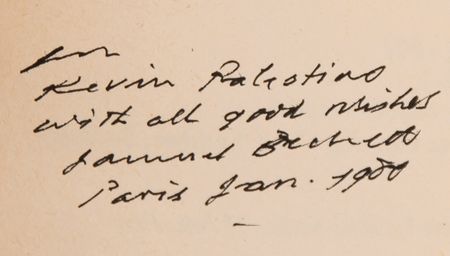 for
Kevin Palestino
with all good wishes
Samuel Beckett
Paris Jan. 1980